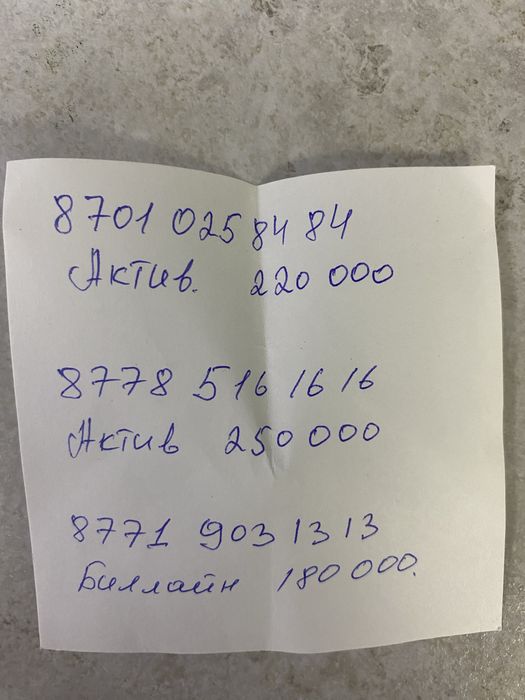 8701 025 84 84
Актив. 220 000
8778 516 16 16
Актив 250 000
8771 903 13 13
Биллайн 180 000.